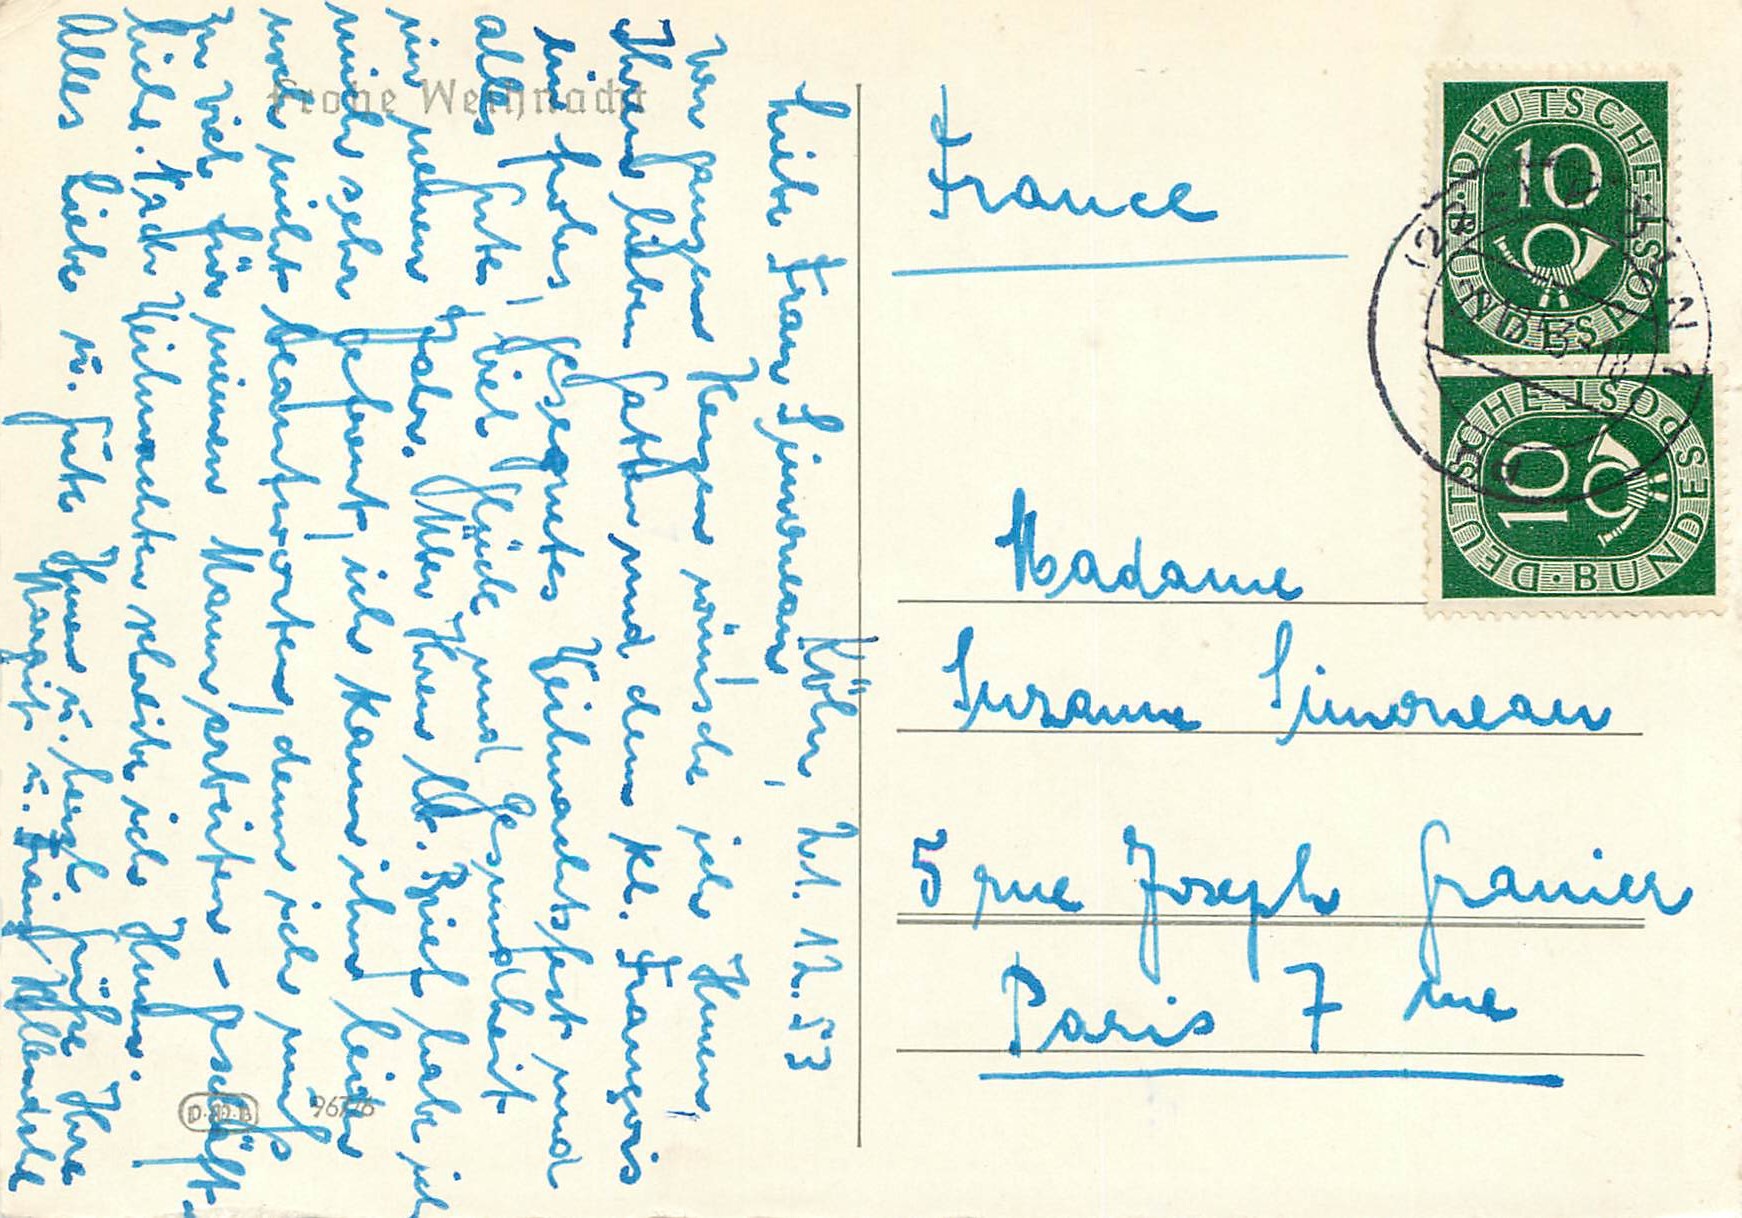 Frohe Weihnacht
Köln, 21. 12. 53
Liebe Frau Simoneau,
von ganzem Herzen wünsche ich Ihnen,
Ihrem lieben Gatten und dem kl. François
ein frohes, gesegnetes Weihnachtsfest und
alles Gute, viel Glück und Gesundheit
im neuen Jahr. Über Ihren lb. Brief habe ich
mich sehr gefreut, ich kann ihn leider
noch nicht beantworten, denn ich muß
zu viel für meinen Mann arbeiten - geschäft-
lich. Nach Weihnachten schreibe ich Ihnen.
Alles Liebe u. Gute Ihnen u. herzl. Grüße Ihre
Margit u. Franz
D.M.B 96776
France
Madame
Suzanne Simoneau
3 rue Joseph Granier
Paris 7 me
DEUTSCHE BUNDESPOST
10
DEUTSCHE BUNDESPOST
10